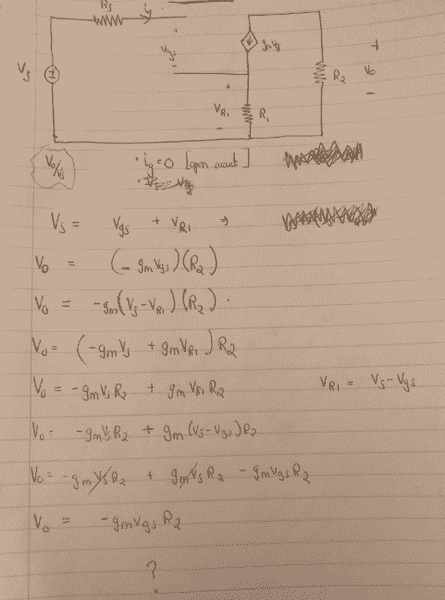 Rs ig
Vs
vgs
-
gmvg
R2
+
Vo
-
+
VR1
-
R1
Vo/Vs
• ig = 0 [open circuit]
Vs = Vgs + VR1 ⇒
Vo = (- gm vgs)(R2)
Vo = -gm(Vs - VR1)(R2).
Vo = (-gm Vs + gm VR1)R2
Vo = -gm Vs R2 + gm VR1 R2 VR1 = Vs - Vgs
Vo = -gm Vs R2 + gm (Vs - vgs) R2
Vo = -gm Vs R2 + gm Vs R2 - gm vgs R2
Vo = -gm vgs R2
?